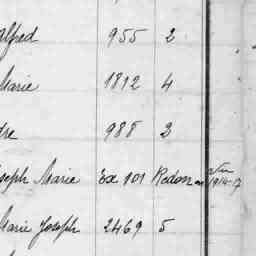 alfred 955 2
Marie 1812 4
dre 988 2
oseph Marie Ex 101 Redon
1914-17
Marie Joseph 2469 5